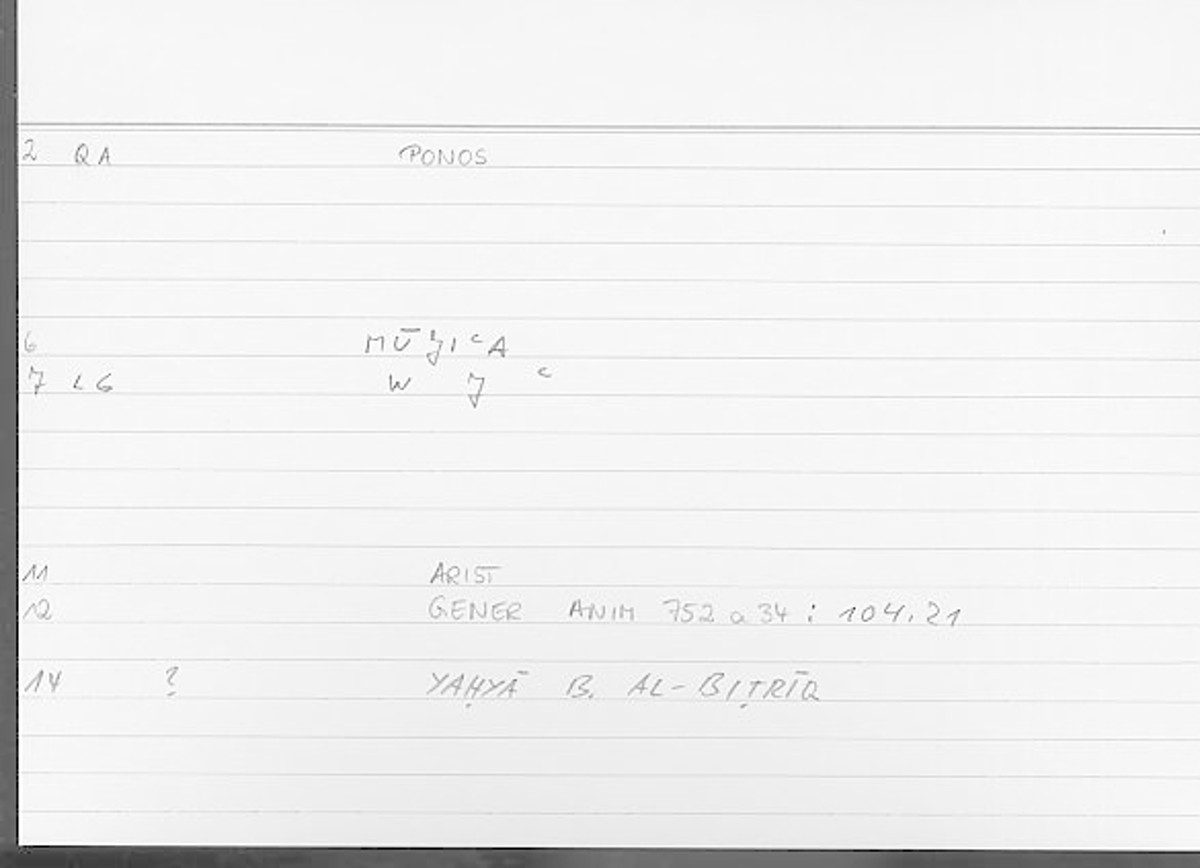 2 QA PONOS
6 MŪǦIʿA
7 LG W Ǧ ʿ
11 ARIST
12 GENER ANIM 752 a 34 : 104.21
14 ? YAḤYĀ B. AL-BIṬRĪQ